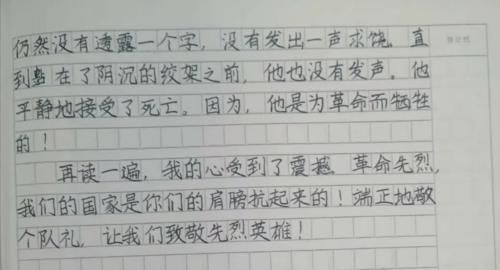 仍然没有透露一个字，没有发出一声求饶。直
到整在了阴沉的绞架之前，他也没有发声。他
平静地接受了死亡。因为，他是为革命而牺牲
的！
再读一遍，我的心受到了震撼。革命先烈，
我们的国家是你们的肩膀抗起来的！端正地敬
个队礼，让我们致敬先烈英雄！